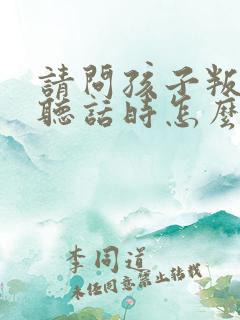 請問孩子叛
聽話時怎麼
李同道
未经同意禁止转载